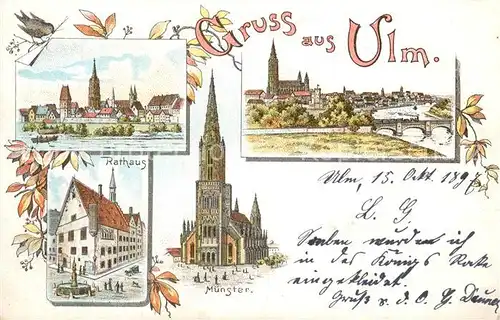 Gruss aus Ulm.
Rathaus
Münster.
Ulm, 15. Okt. 1897
L. G.
Soeben wurden ich
in des Königs Rocke
eingekleidet.
Gruß v. d. O. G.